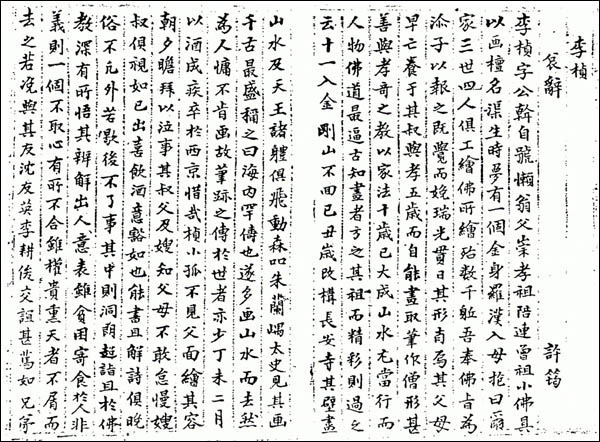 李楨
哀辭 許筠
李楨字公幹自號懶翁父崇孝祖陪連曾祖小佛具
以画檀名渠生時夢有一個金身羅漢入母抱曰爾
家三世四人俱工繪佛所繪殆數千軀吾奉佛旨爲
添子以報之既覺而娩瑞光貫日其形肖焉其父母
早亡養于其叔興孝五歲而自能畫取筆作僧形甚
善興孝奇之教以家法十歲已大成山水尤當行而
人物佛道最逼古知畫者方之其祖而精彩則過之
云十一入金剛山不回己丑歲改構長安寺其壁畫
山水及天王諸軆俱飛動森叩朱蘭嵎太史見其画
千古最盛稱之曰海內罕儔也遂多画山水而去然
爲人慵不肯画故筆跡之傳於世者亦少丁未二月
以酒成疾卒於西京惜哉楨小孤不見父面繪其容
朝夕瞻拜以泣事其叔父及嫂知父母不敢怠慢嫂
叔俱視如己出喜飲酒意豁如也能書且解詩俱晚
俗不凡外若歇後不了事其中則洞朗超詣且於佛
教深有所悟其辨解出人意表雖食困寄食於人非
義則一個不取心有所不合雖權貴重夭者不屑而
去之若浼與其友沈友英李耕後交誼甚篤如兄弟